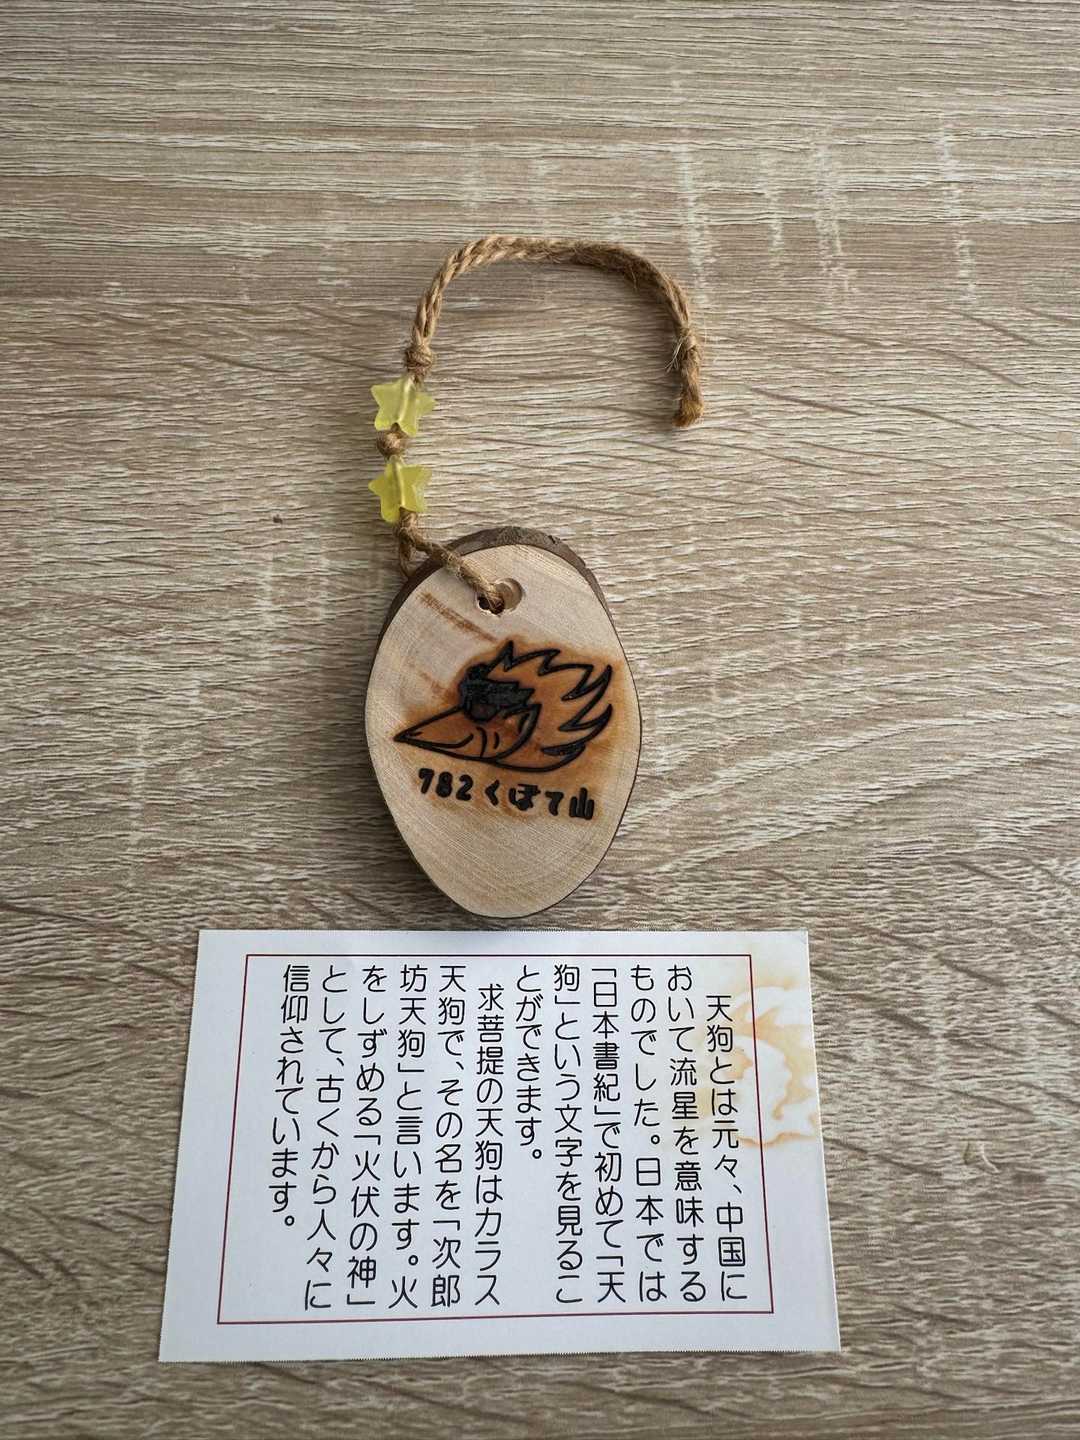 782くぼて山
天狗とは元々、中国に
おいて流星を意味する
ものでした。日本では
「日本書紀」で初めて「天
狗」という文字を見るこ
とができます。
求菩提の天狗はカラス
天狗で、その名を「次郎
坊天狗」と言います。火
をしずめる「火伏の神」
として、古くから人々に
信仰されています。